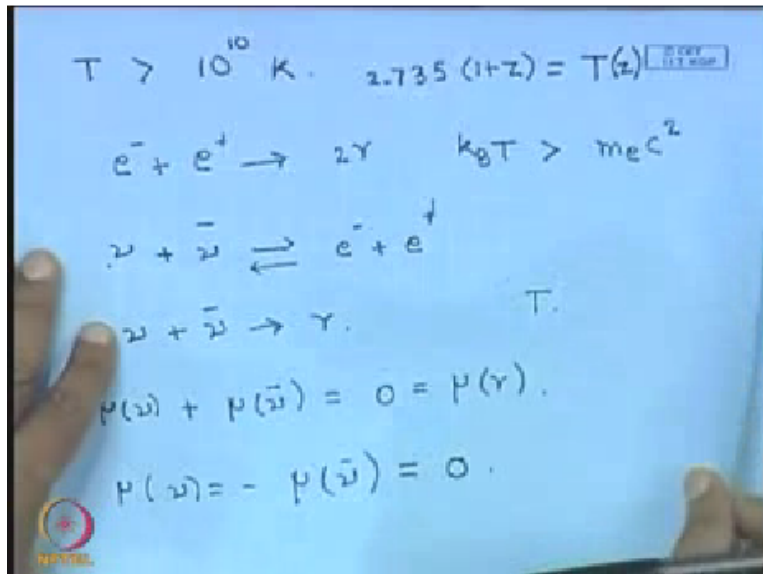 T > 10^10 K. 2.735 (1+z) = T(z)
e⁻ + e⁺ → 2γ k_B T > m_e c²
ν + ν̄ ⇌ e⁻ + e⁺
ν + ν̄ → γ. T.
μ(ν) + μ(ν̄) = 0 = μ(γ).
μ(ν) = - μ(ν̄) = 0.
NPTEL